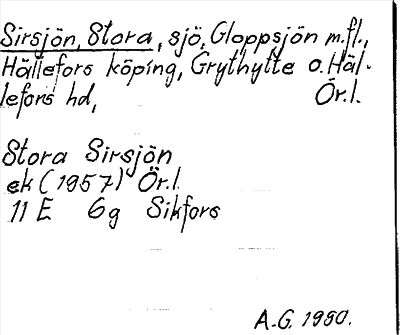 Sirsjön, Stora, sjö, Gloppsjön m.fl.,
Hällefors köping, Grythytte o. Häl-
lefors hd, Ör.l.
Stora Sirsjön
ek (1957) Ör.l.
11 E 6g Sikfors
A.G. 1980.